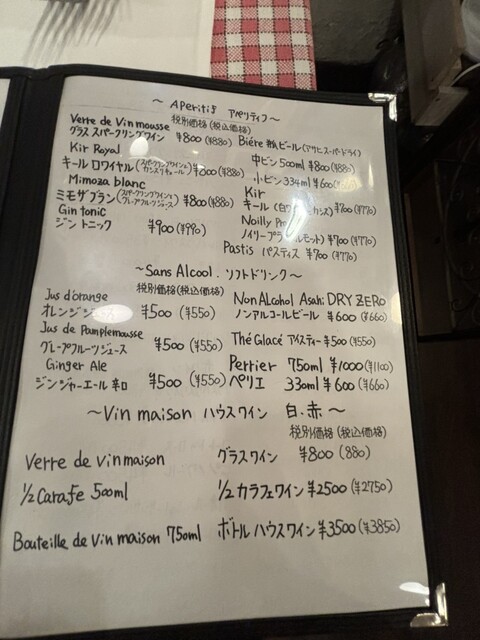 ～ Aperitif アペリティフ～
税別価格(税込価格)
Verre de Vin mousse
グラス スパークリングワイン ¥800 (¥880)
Kir Royal
キール ロワイヤル(スパークリングワインとカシスリキュール) ¥800(¥880)
Mimoza blanc
ミモザブラン(スパークリングワインとグレープフルーツジュース) ¥800(¥880)
Gin tonic
ジン トニック ¥900(¥990)
Biére 瓶ビール(アサヒスーパードライ)
中ビン 500ml ¥800(¥880)
小ビン 334ml ¥600
Kir
キール (白ワイン カシス) ¥700(¥770)
Noilly
ノイリープラ ¥700(¥770)
Pastis パスティス ¥700(¥770)
～Sans Alcool. ソフトドリンク～
税別価格(税込価格)
Jus d'orange
オレンジジュース ¥500 (¥550)
Jus de Pamplemousse
グレープフルーツジュース ¥500 (¥550)
Ginger Ale
ジンジャーエール 辛口 ¥500 (¥550)
Non ALcohol Asahi DRY ZERO
ノンアルコールビール ¥600(¥660)
Thé Glacé アイスティー ¥500(¥550)
Perrier 750ml ¥1000(¥1100)
ペリエ 330ml ¥600(¥660)
～Vin maison ハウスワイン 白.赤～
税別価格(税込価格)
Verre de vin maison グラスワイン ¥800 (880)
1/2 Carafe 500ml 1/2 カラフェワイン ¥2500(¥2750)
Bouteille de vin maison 750ml ボトル ハウスワイン ¥3500(¥3850)